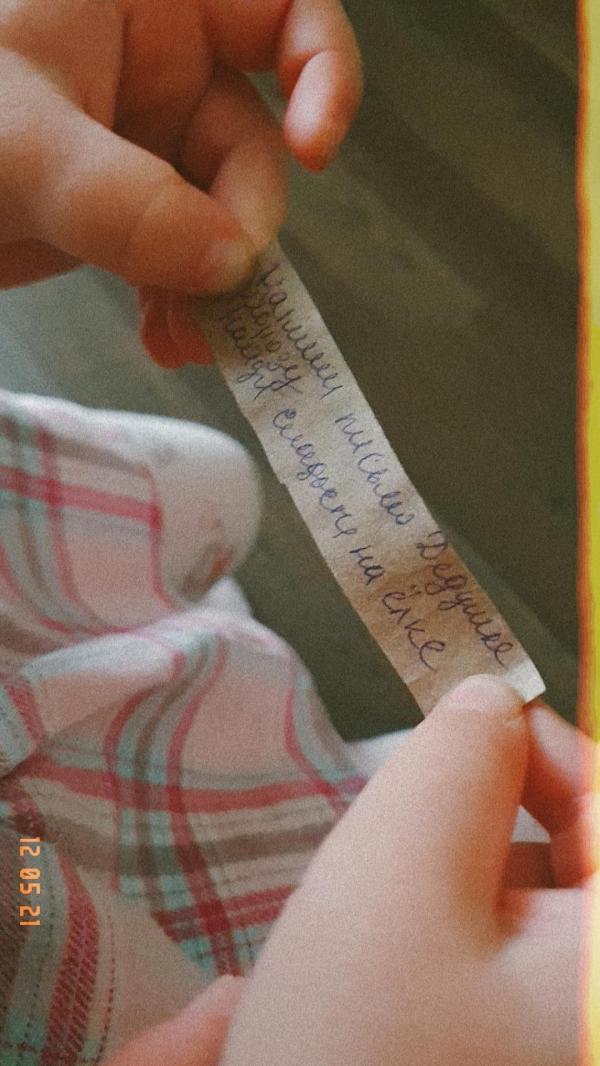 Напиши письмо Дедушке
Морозу
Найди сладость на ёлке
12 05 21